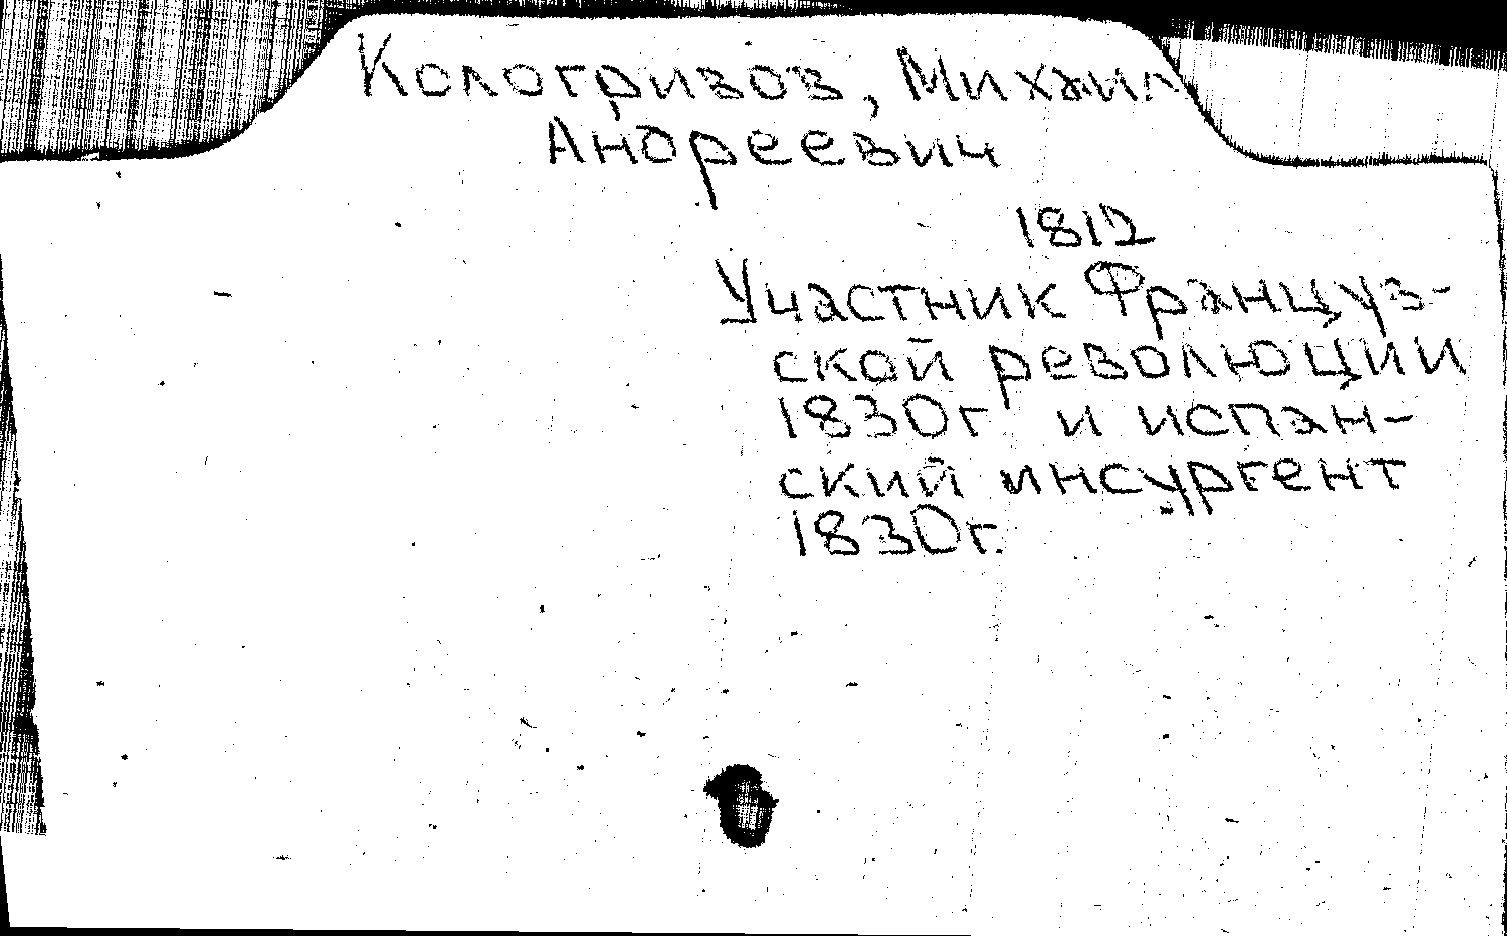 Кологривов, Михаил
Андреевич
1812
Участник Француз-
ской революции
1830г и испан-
ский инсургент
1830г.